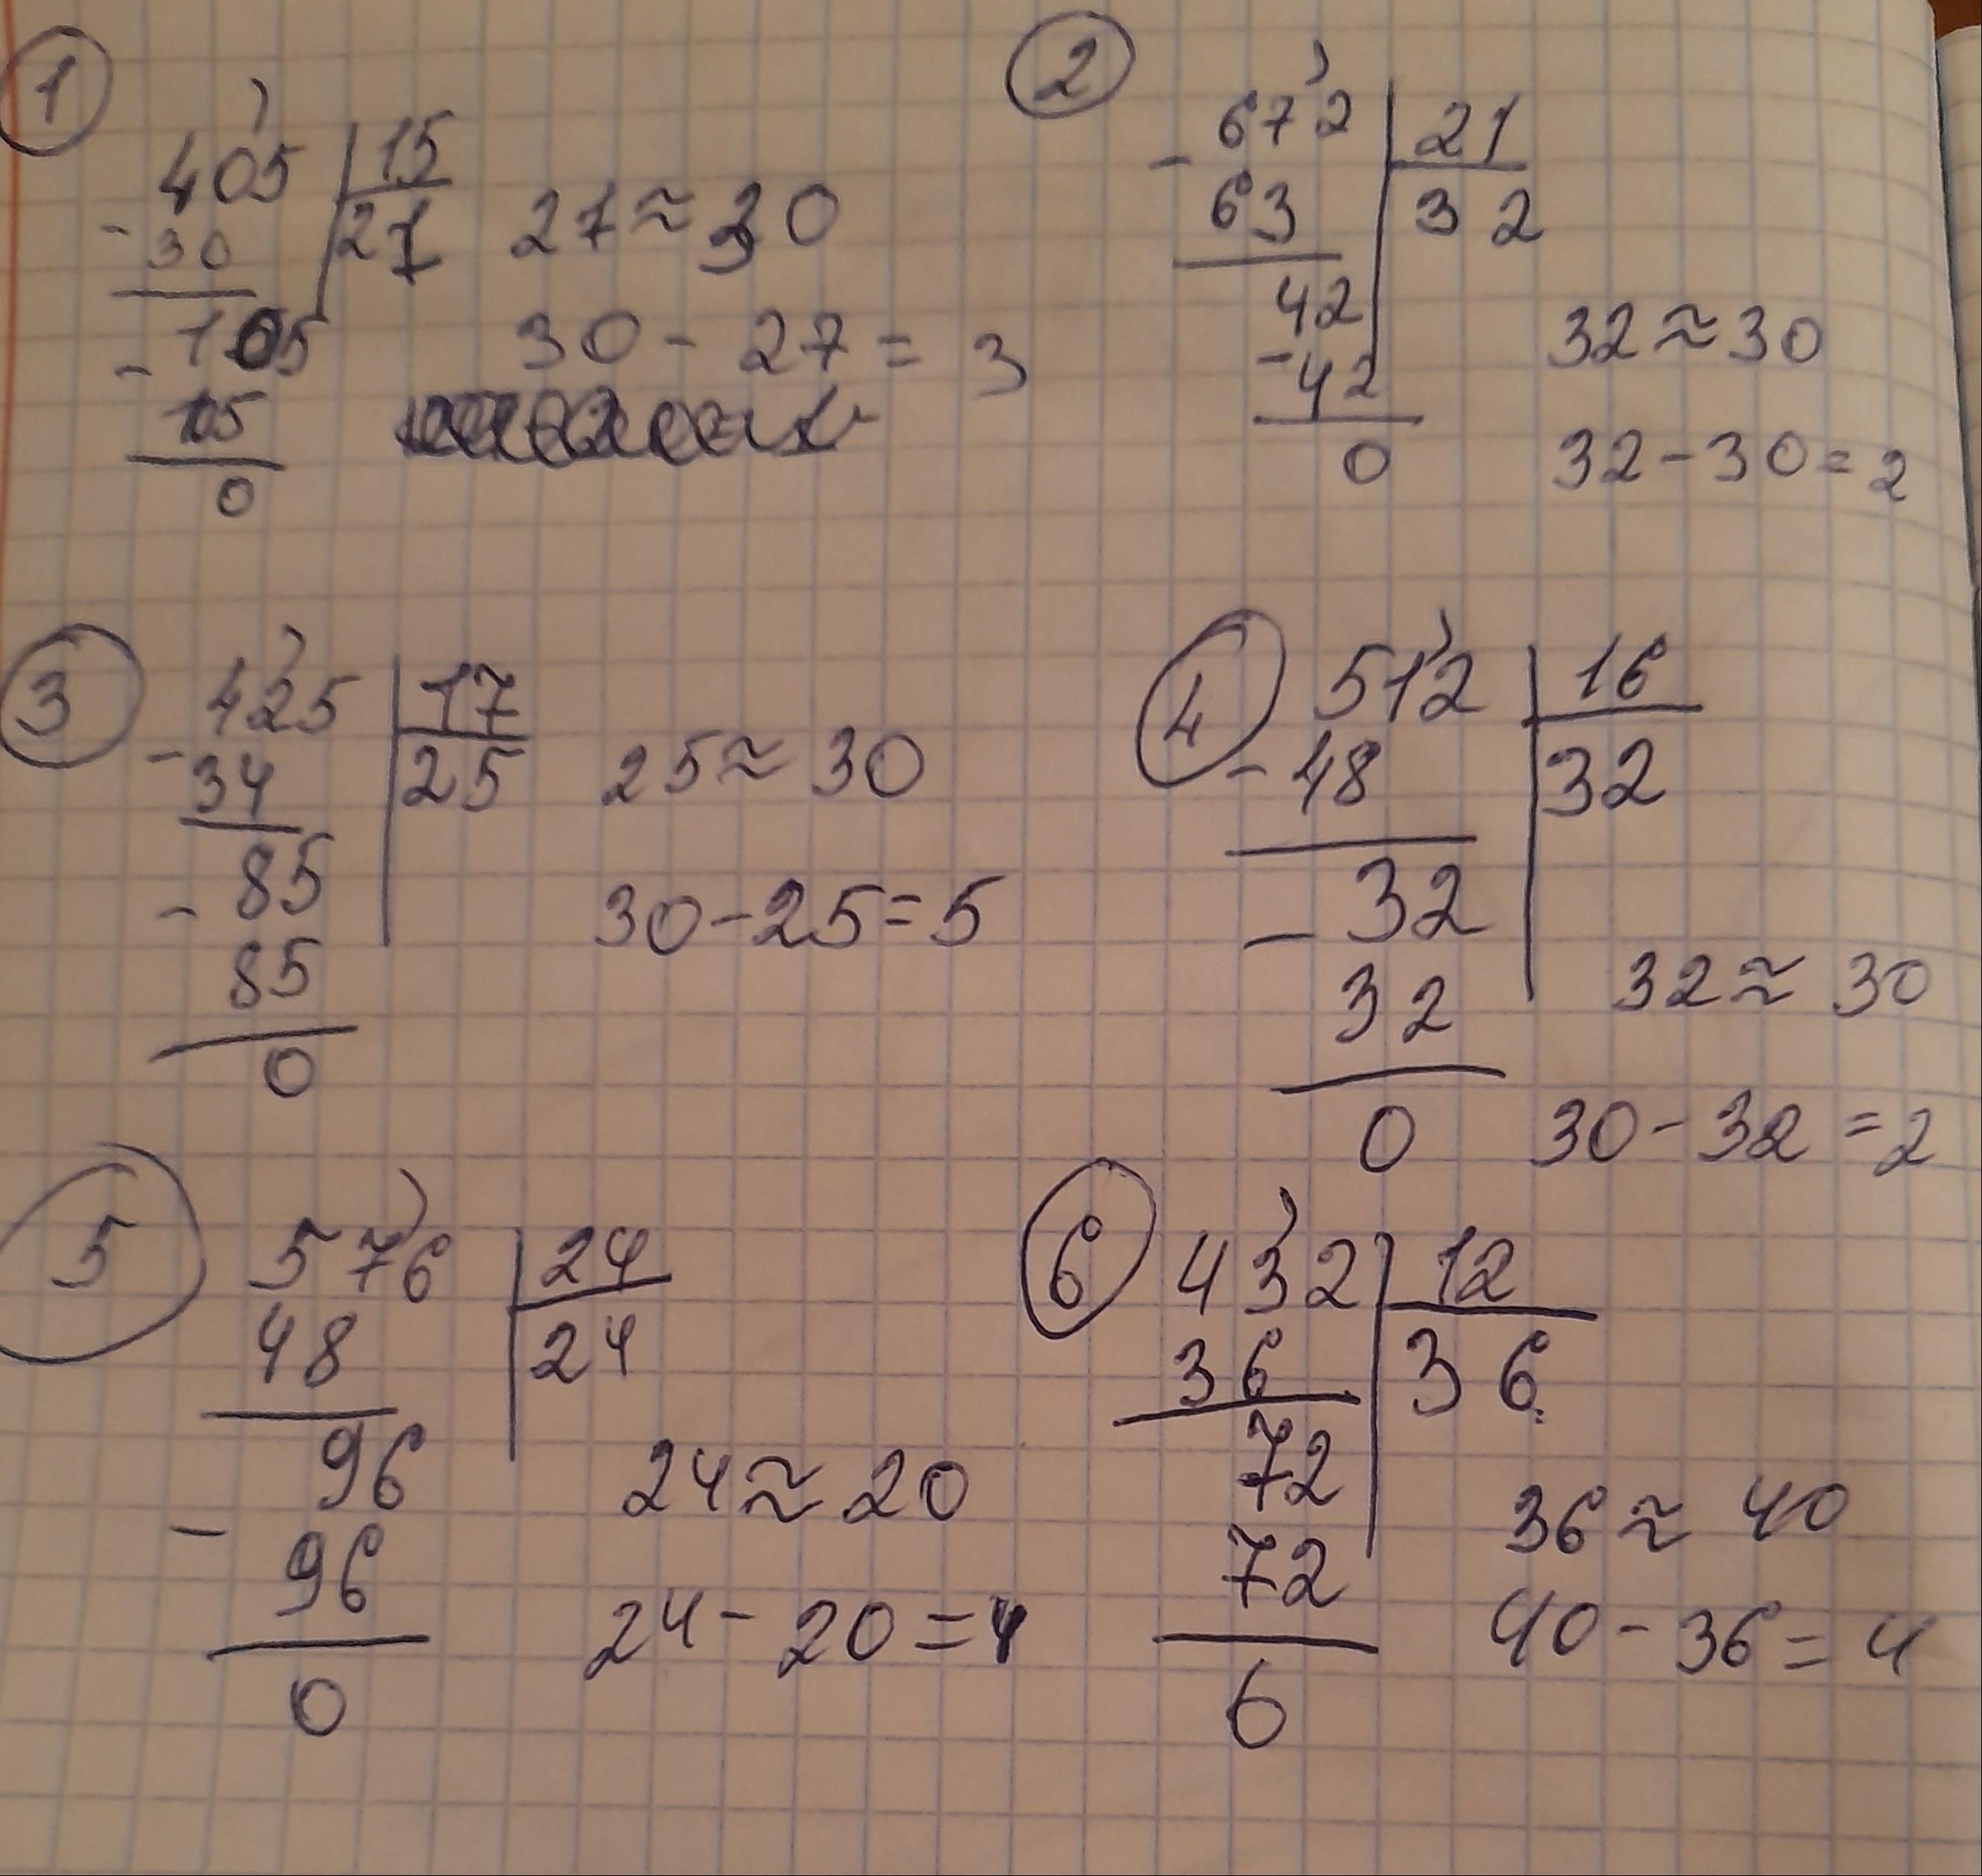 1
405 15
- 30 27 27 ≈ 30
- 105 30 - 27 = 3
0
2
- 672 21
63 32
42
- 42 32 ≈ 30
0 32 - 30 = 2
3
- 425 17
34 25 25 ≈ 30
- 85 30 - 25 = 5
85
0
4
- 512 16
48 32
- 32
32 32 ≈ 30
0 30 - 32 = 2
5
576 24
48 24
- 96 24 ≈ 20
96 24 - 20 = 4
0
6
432 12
36 36
72 36 ≈ 40
72 40 - 36 = 4
6